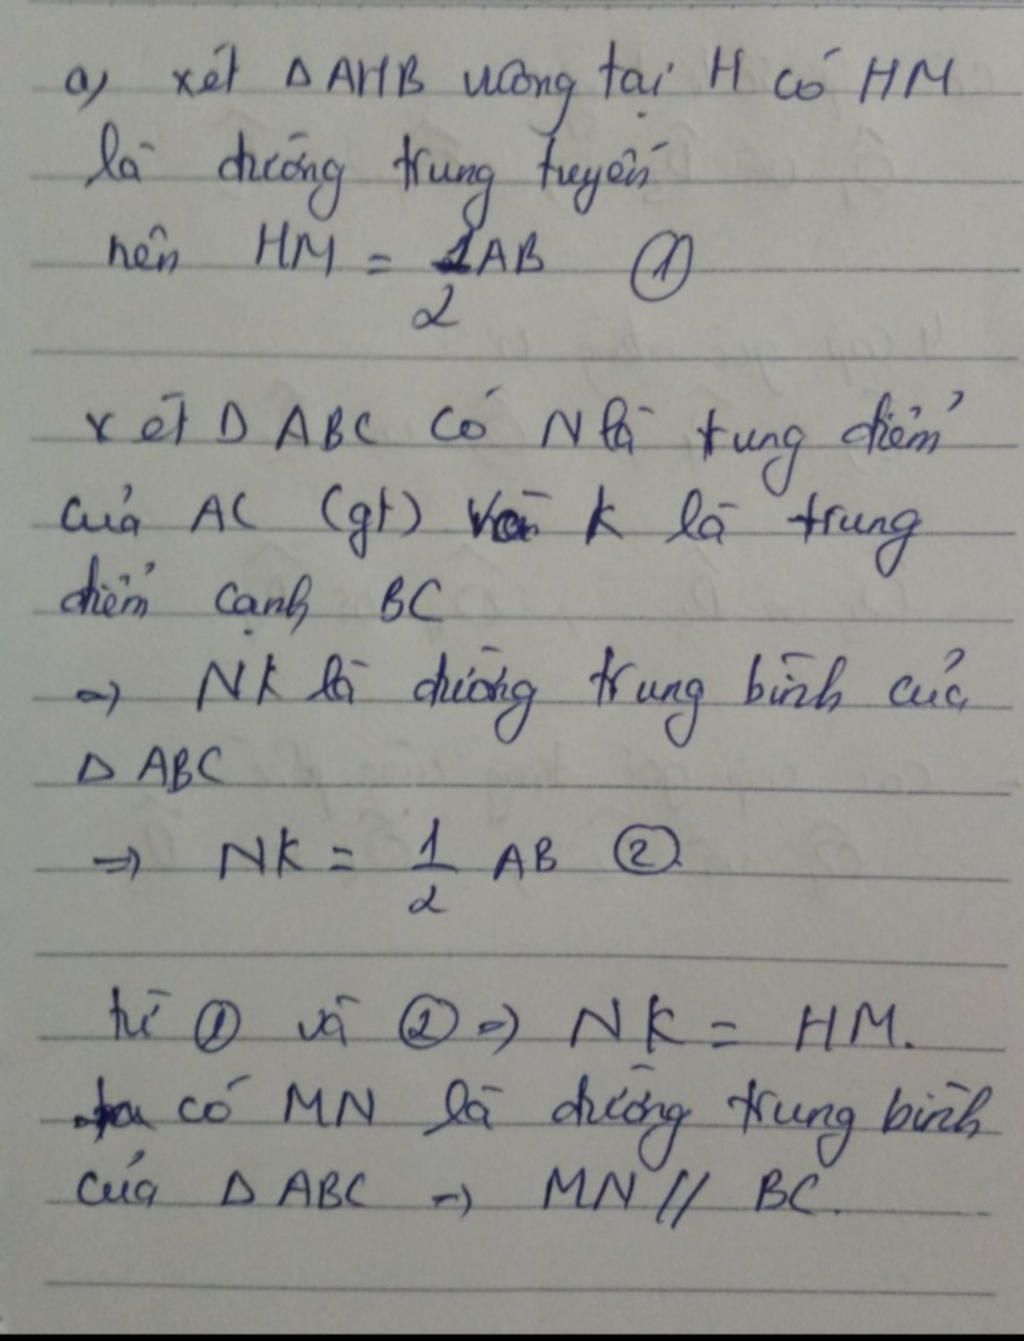 a) xét Δ AHB vuông tại H có HM
là đường trung tuyến
nên HM = 1/2 AB ①
xét Δ ABC có N là tung điểm
của AC (gt) và K là trung
điểm cạnh BC
⇒ NK là đường trung bình của
Δ ABC
⇒ NK = 1/2 AB ②
từ ① và ② ⇒ NK = HM.
ta có MN là đường trung bình
của Δ ABC ⇒ MN // BC.